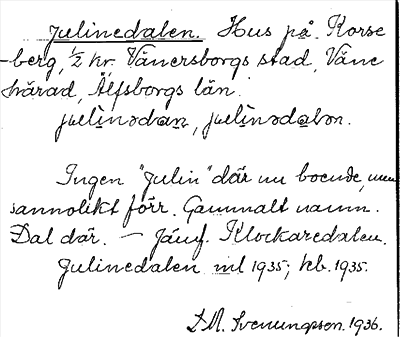 Julinedalen. Hus på Korse
-berg, 1/2 hr. Vänersborgs stad, Väne
härad, Älfsborgs län.
Ingen "Julin" där nu boende, men
sannolikt förr. Gammalt namn.
Dal där. — Jämf. Klockaredalen.
Julinedalen ml 1935; kb. 1935.
D.M. Svenungsson. 1936.